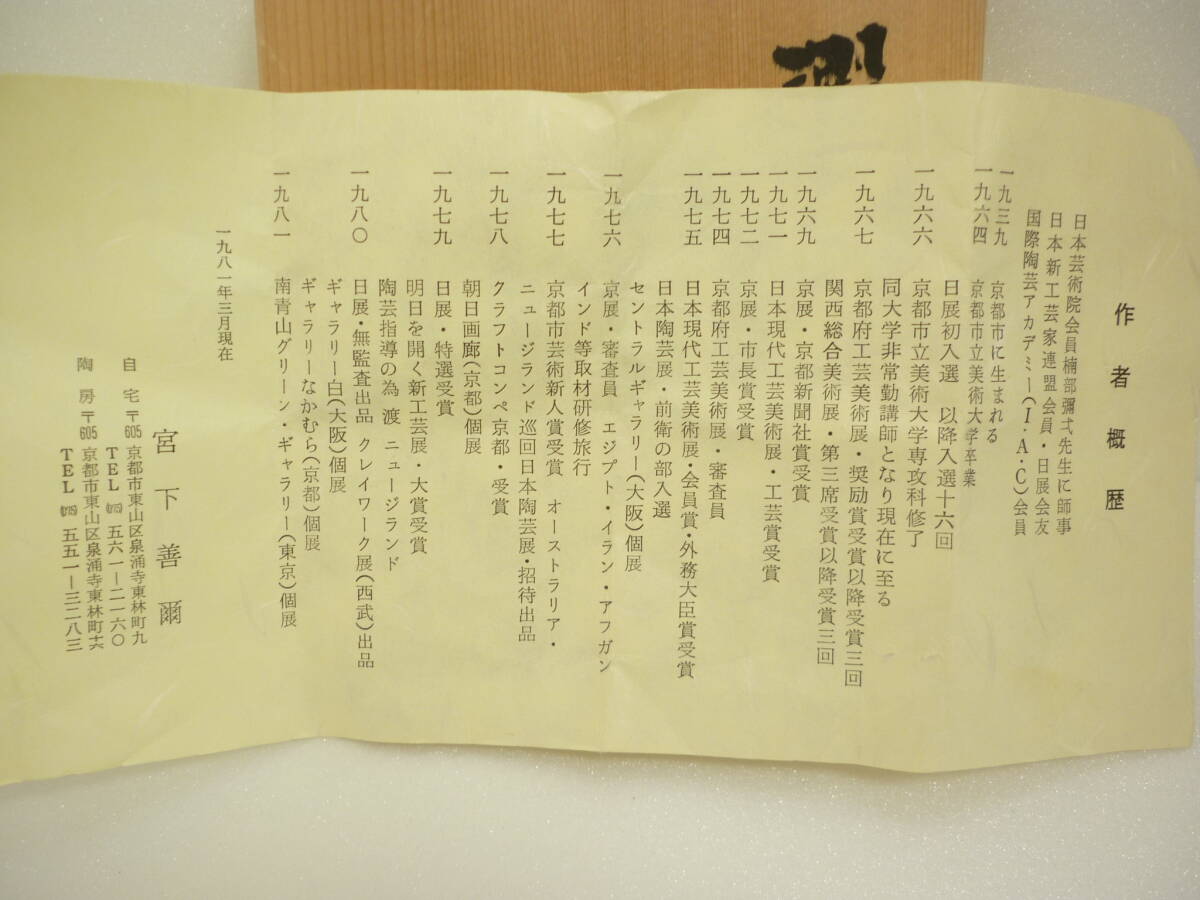 作者概歴
日本芸術院会員楠部彌弌先生に師事
日本新工芸家連盟会員・日展会友
国際陶芸アカデミー(I・A・C)会員
一九三九 京都市に生まれる
一九六四 京都市立美術大学卒業
日展初入選 以降入選十六回
一九六六 京都市立美術大学専攻科修了
同大学非常勤講師となり現在に至る
一九六七 京都府工芸美術展・奨励賞受賞以降受賞三回
関西総合美術展・第三席受賞以降受賞三回
一九六九 京展・京都新聞社賞受賞
一九七一 日本現代工芸美術展・工芸賞受賞
一九七二 京展・市長賞受賞
一九七四 京都府工芸美術展・審査員
一九七五 日本現代工芸美術展・会員賞・外務大臣賞受賞
日本陶芸展・前衛の部入選
セントラルギャラリー(大阪)個展
一九七六 京展・審査員 エジプト・イラン・アフガン
インド等取材研修旅行
一九七七 京都市芸術新人賞受賞 オーストラリア・
ニュージランド巡回日本陶芸展・招待出品
一九七八 クラフトコンペ京都・受賞
朝日画廊(京都)個展
一九七九 日展・特選受賞
明日を開く新工芸展・大賞受賞
陶芸指導の為 渡 ニュージランド
一九八〇 日展・無監査出品 クレイワーク展(西武)出品
ギャラリー白(大阪)個展
ギャラリーなかむら(京都)個展
一九八一 南青山グリーン・ギャラリー(東京)個展
一九八一年三月現在
宮下善爾
自宅 〒605 京都市東山区泉涌寺東林町九
TEL 五六一―二一六〇
陶房 〒605 京都市東山区泉涌寺東林町六
TEL 五五一―三二八三